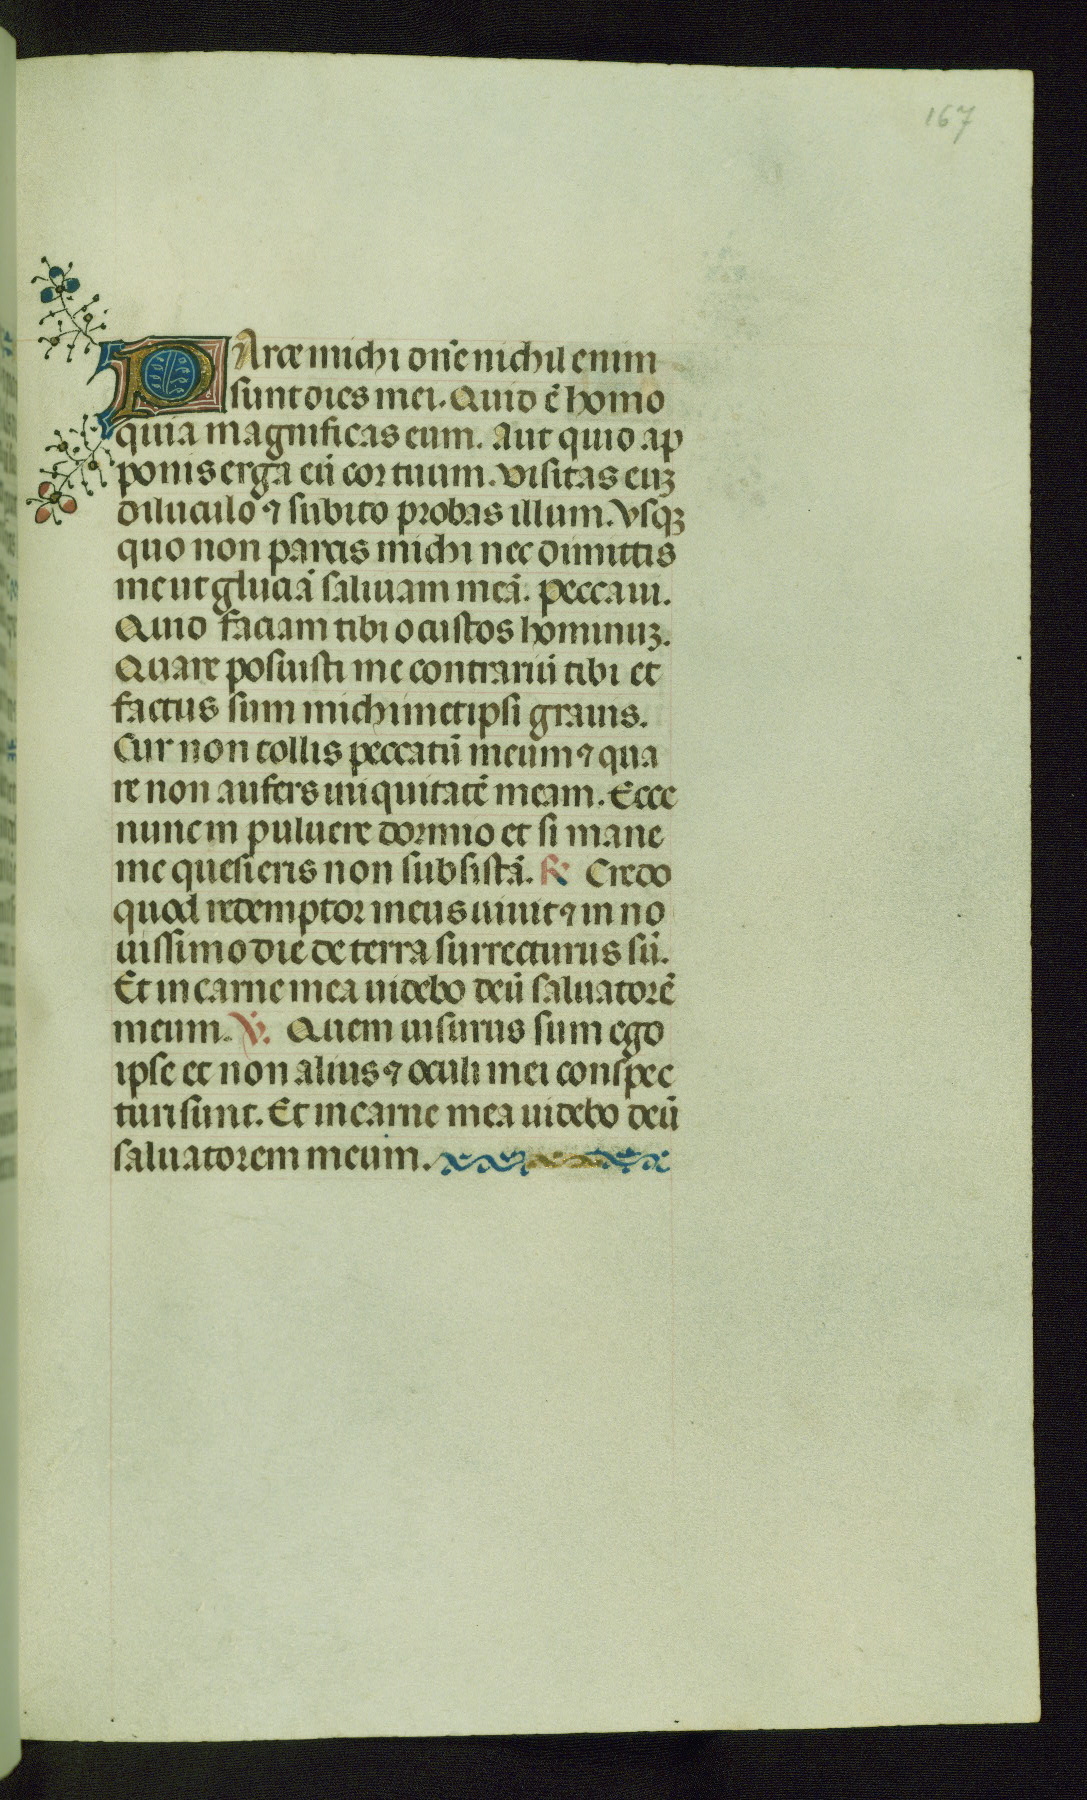 167
PArce michi dn̄e nichil enim
sunt dies mei. Quid ē homo
quia magnificas eum. Aut quid ap
ponis erga eū cor tuum. Visitas euꝫ
diluculo ⁊ subito probas illum. Vsqꝫ
quo non parcis michi nec dimittis
me ut gluciā saliuam meā. peccaui.
Quid faciam tibi o custos hominuꝫ.
Quare posuisti me contrariū tibi et
factus sum michimetipsi grauis.
Cur non tollis peccatū meum ⁊ qua
re non aufers iniquitatē meam. Ecce
nunc in puluere dormio et si mane
me quesieris non subsistā. ℟ Credo
quod redemptor meus uiuit ⁊ in no
uissimo die de terra surrecturus sū.
Et in carne mea uidebo deū saluatorē
meum. ℣. Quem uisurus sum ego
ipse et non alius ⁊ oculi mei conspec
turi sunt. Et in carne mea uidebo deū
saluatorem meum.